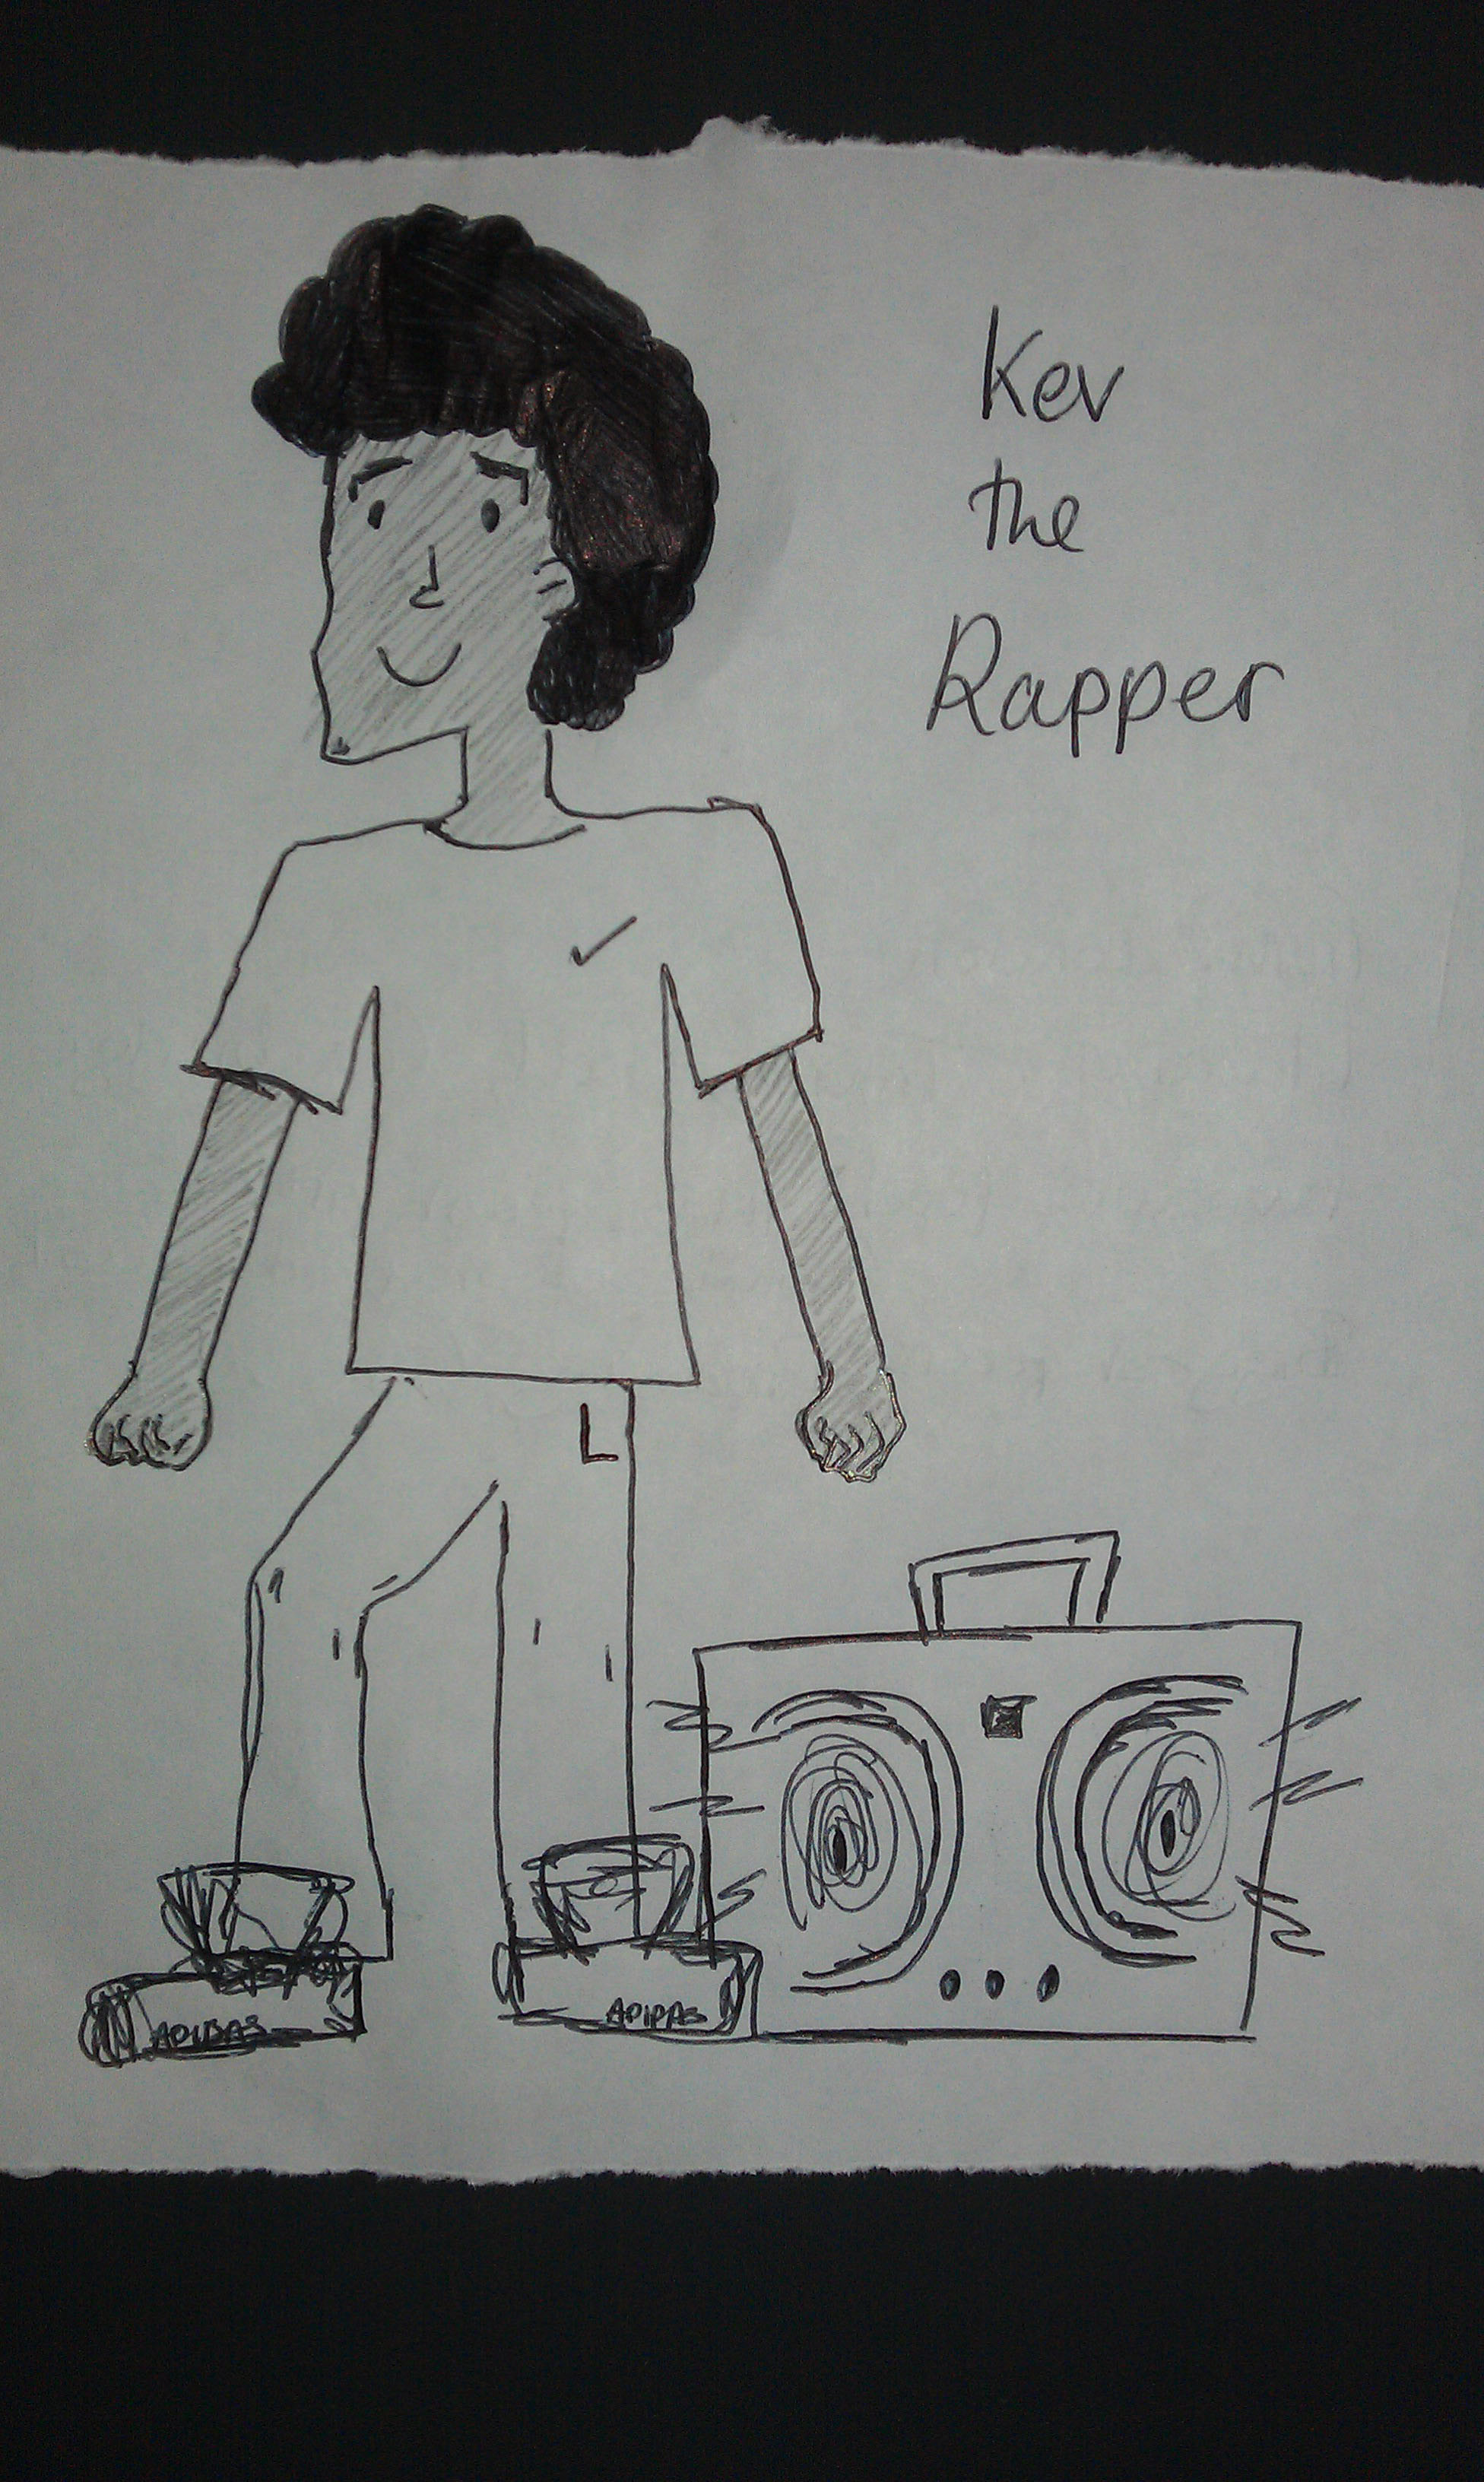 Kev
the
Rapper
L
ADIDAS
ADIDAS